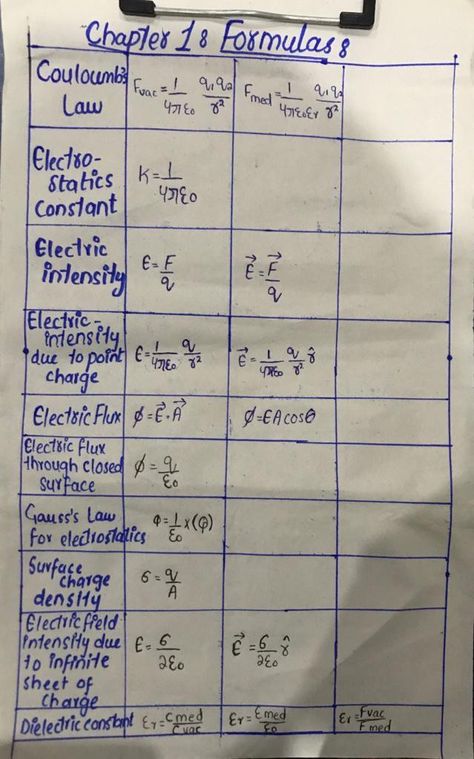 Chapter 1 : Formulas :
Couloumb's
Law
Fvac = 1/4πε0 q1q2/r²
Fmed = 1/4πε0εr q1q2/r²
Electro-
statics
constant
K = 1/4πε0
Electric
intensity
E = F/q
E⃗ = F⃗/q
Electric-
intensity
due to point
charge
E = 1/4πε0 q/r²
E⃗ = 1/4πε0 q/r² r̂
Electric Flux
φ = E⃗ . A⃗
φ = EA cosθ
Electric flux
through closed
surface
φ = q/ε0
Gauss's Law
for electrostatics
φ = 1/ε0 x (Q)
Surface
charge
density
σ = q/A
Electric field
intensity due
to infinite
sheet of
charge
E = σ/2ε0
E⃗ = σ/2ε0 r̂
Dielectric constant
εr = Cmed/Cvac
εr = εmed/ε0
εr = Fvac/Fmed